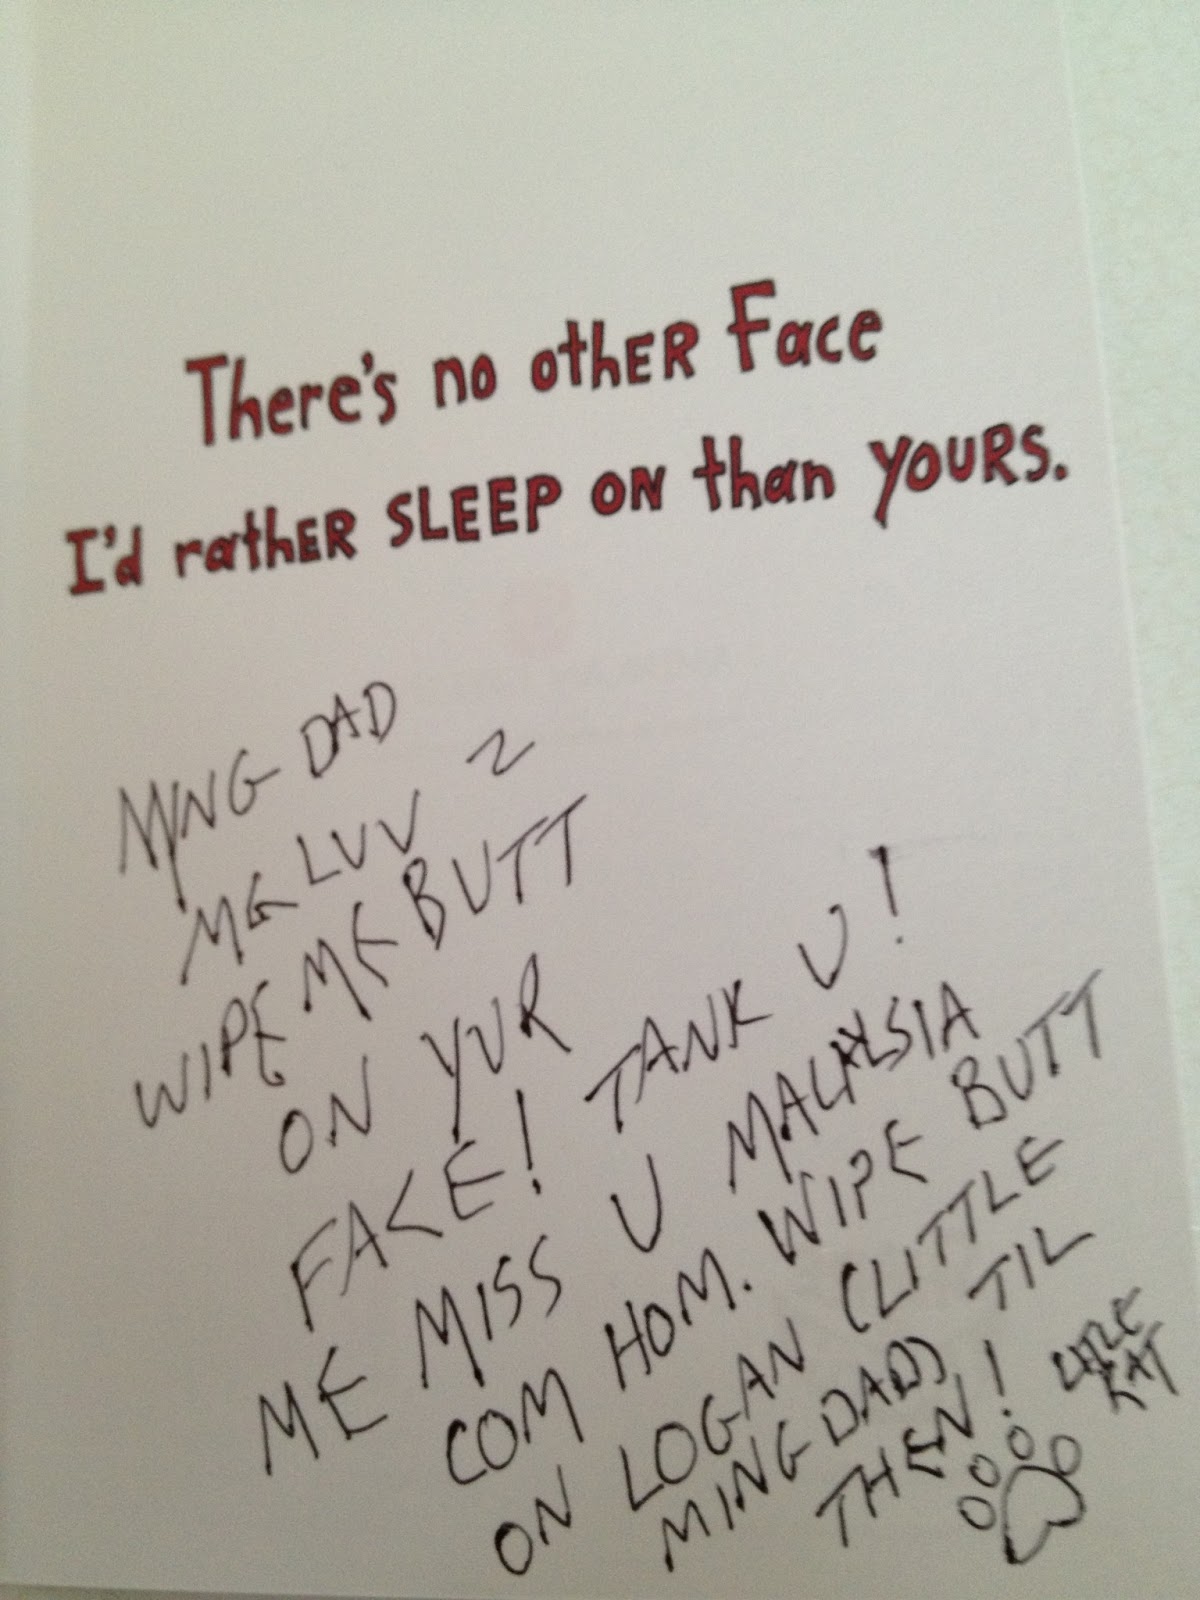 There's no othER Face
I'd rathER SLEEP ON than YOURS.
MING DAD
ME LUV 2
WIPE ME BUTT
ON YUR
FACE! TANK U!
ME MISS U MALAYSIA
COM HOM. WIPE BUTT
ON LOGAN (LITTLE
MING DAD) TIL
THEN!
KAT